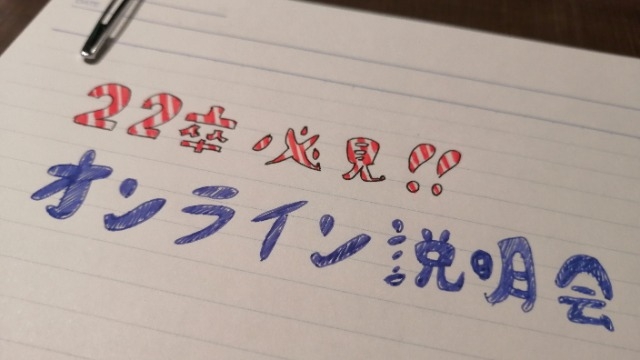 22卒必見!!
オンライン説明会